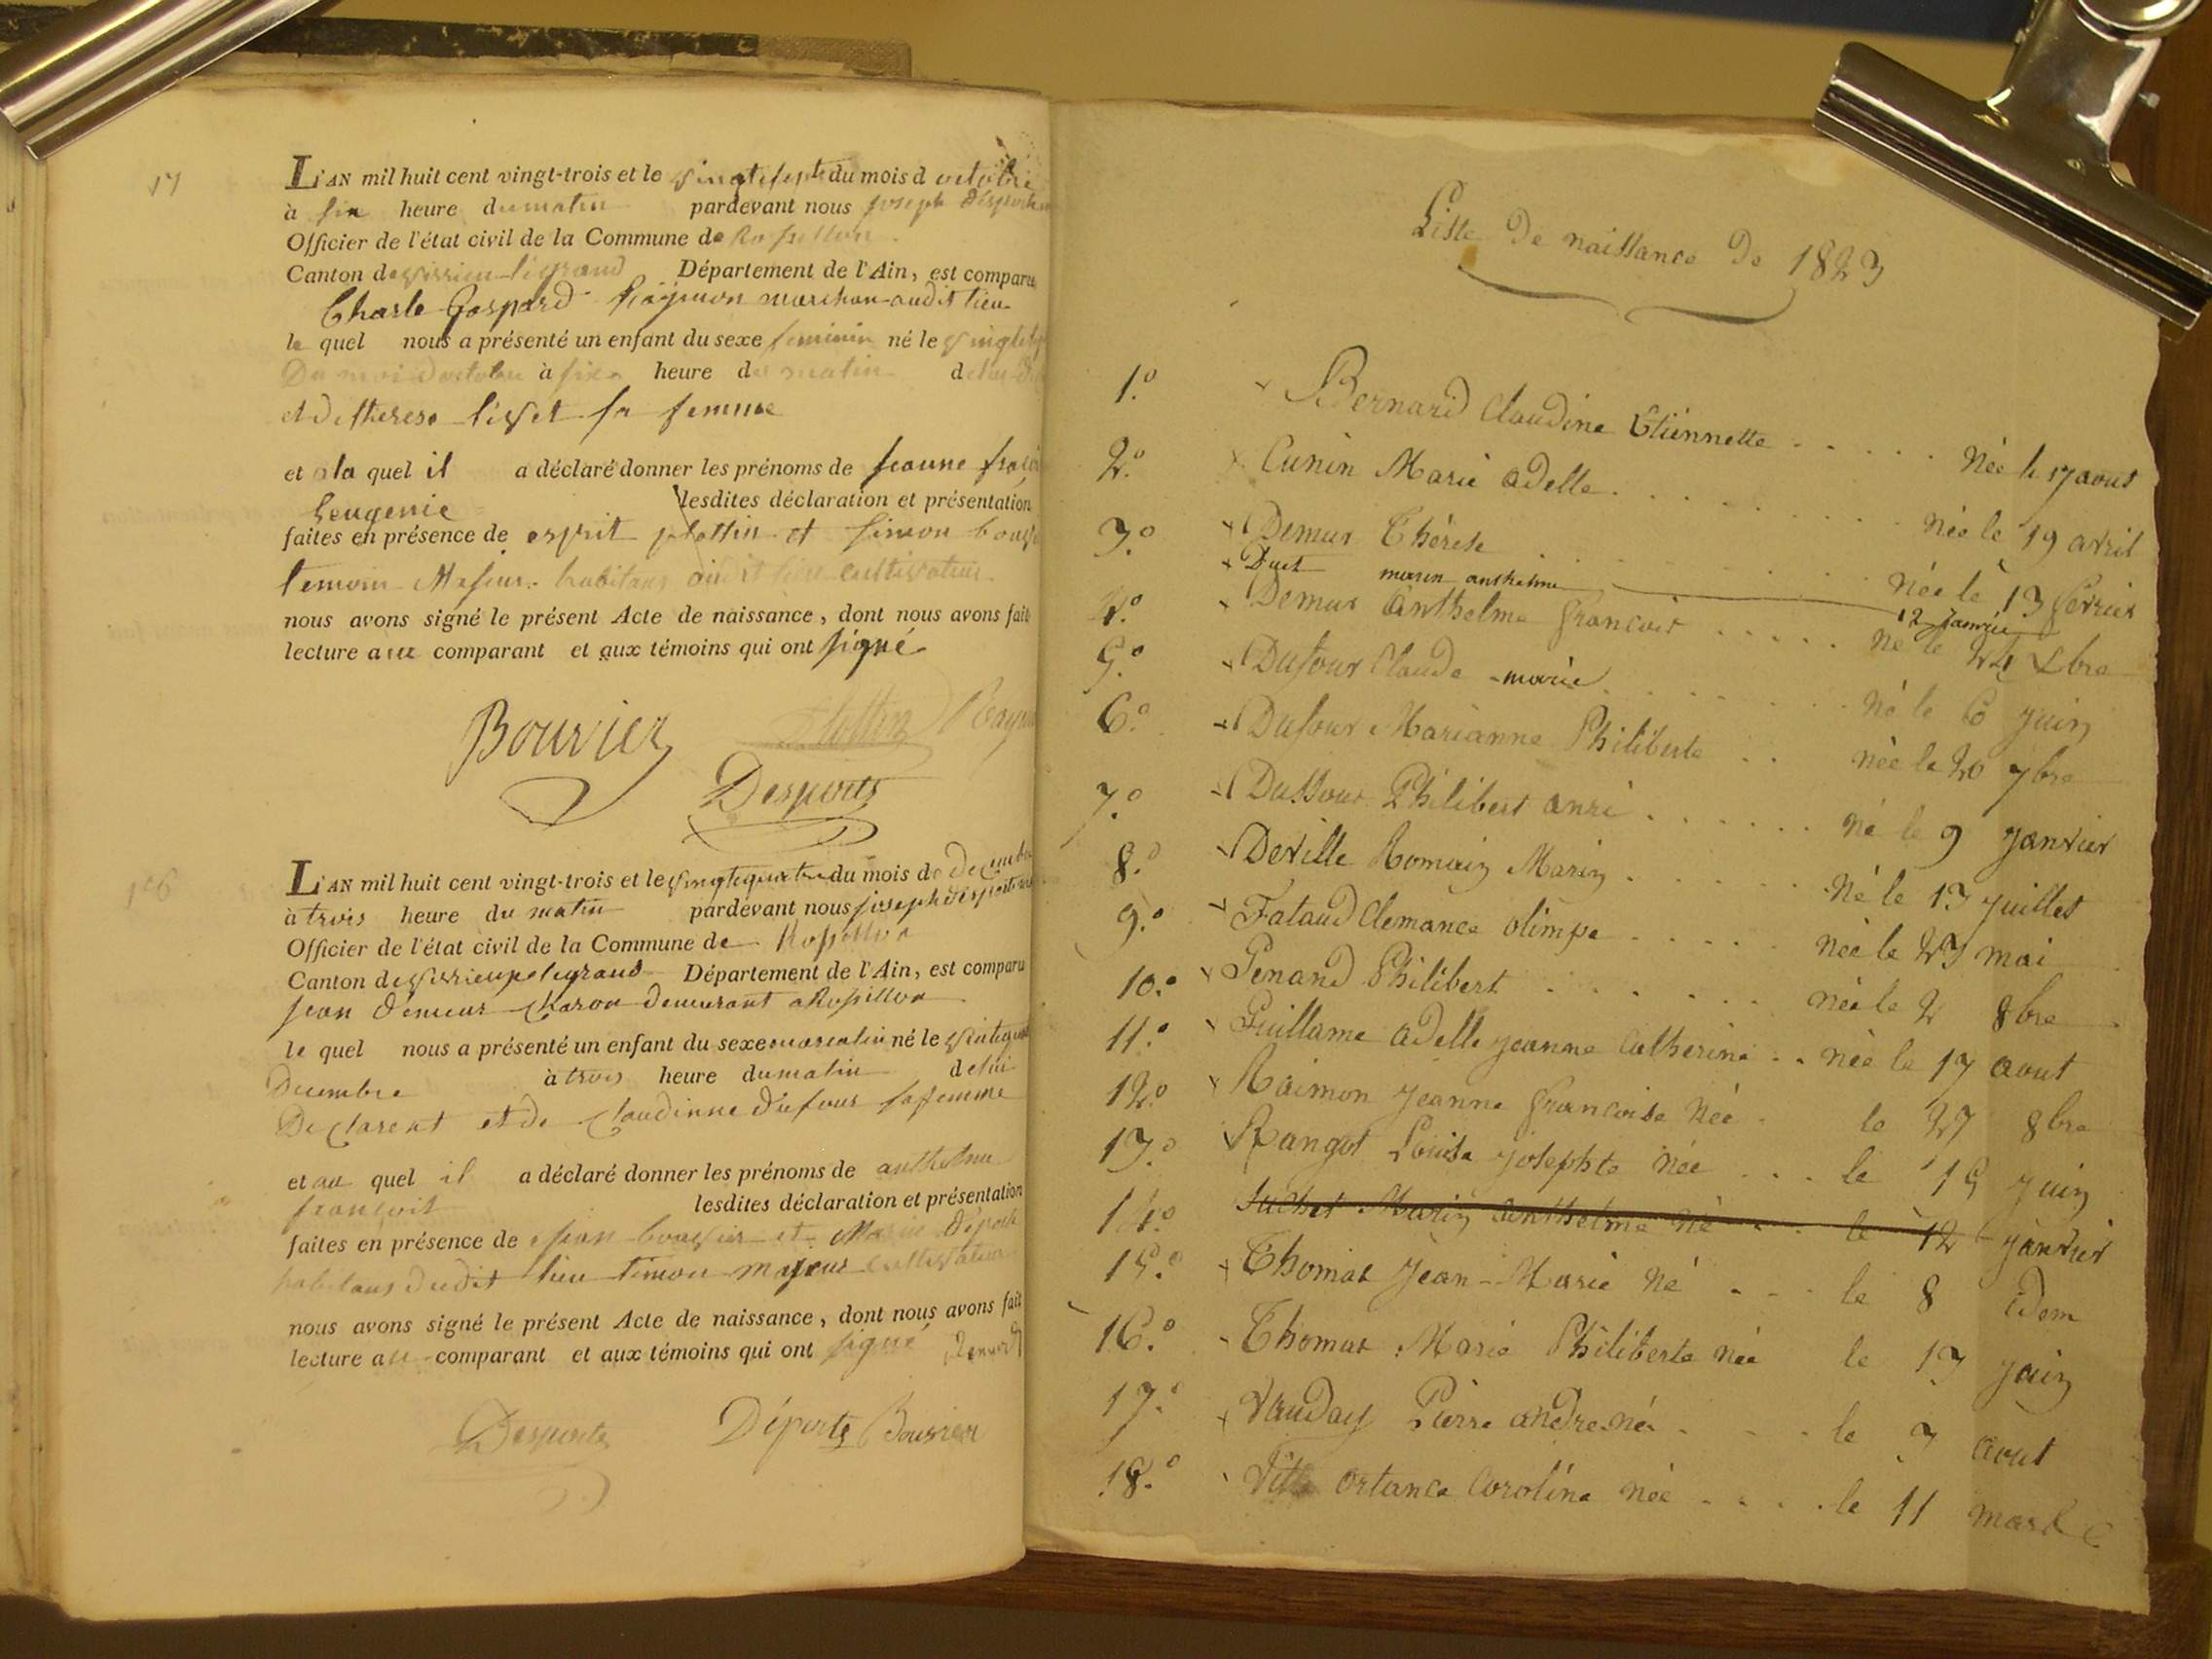 17
L'AN mil huit cent vingt-trois et le vingtesept du mois d octobre
à six heure du matin pardevant nous joseph desportes
Officier de l'état civil de la Commune de Rossillon
Canton de virieu-legrand Département de l'Ain, est comparu
Charle Gaspard Réymon marchan audit lieu
le quel nous a présenté un enfant du sexe feminin né le
Du moi doctobre à six heure du matin de lui
et de therese livet sa femme
et a la quel il a déclaré donner les prénoms de jeanne
heugenie lesdites déclaration et présentation
faites en présence de esprit plottin et simon
temoin Majeur habitans audit lieu cultivateur
nous avons signé le présent Acte de naissance, dont nous avons fait
lecture au comparant et aux témoins qui ont signé
Bouvier Plottin
Desportes
L'AN mil huit cent vingt-trois et le vingtequatre du mois de decembre
à trois heure du matin pardevant nous joseph desportes
Officier de l'état civil de la Commune de Rossillon
Canton de virieux legrand Département de l'Ain, est comparu
jean demeur charon demeurant a Rossillon
le quel nous a présenté un enfant du sexe masculin né le
Decembre à trois heure du matin de lui
Declarent et de Claudinne dufour sa femme
et au quel il a déclaré donner les prénoms de anthelme
françoit lesdites déclaration et présentation
faites en présence de jean bouvier et
habitans dudit lieu timon majeur cultivateur
nous avons signé le présent Acte de naissance, dont nous avons fait
lecture au comparant et aux témoins qui ont signé
Desportes Déporte Bouvier
Liste De naissance De 1823
1.º Bernard Claudine Etiennette . . . . . Née le 17 aout
2.º Cunin Marie adelle . . . . . . . Née le 19 avril
3.º Demur Thérese . . . . . . . . Née le 13 fevrier
Duet marin anthelme 12 janvier
4.º Demur Anthelme françois . . . . . Né le 24 Xbre
5.º Dufour Claude -marie . . . . . . . Né le 6 juin
6.º Dufour Marianne Philiberte . . Née le 20 7bre
7.º Duffour Philibert anri . . . . . . Né le 9 janvier
8.º Deville Romain Marin . . . . . . Né le 13 juillet
9.º Fataud Clemance olimpe . . . . . Née le 23 mai
10.º Genand Philibert . . . . . . . Née le 2 8bre
11.º Guillame adelle jeanne Catherine . . Née le 17 aout
12.º Raimon jeanne francoise Née . le 27 8bre
13.º Rangot Louise josephte Née . . . le 15 juin
14.º Suchet Marin anthelme Né . . . le 12 janvier
15.º Thomas jean-Marie Né . . . le 8 idem
16.º Thomas Marie Philiberte née le 13 juin
17.º Vauday Pierre andre né . . . le 3 aout
18.º ortance Caroline née . . . . le 11 mars